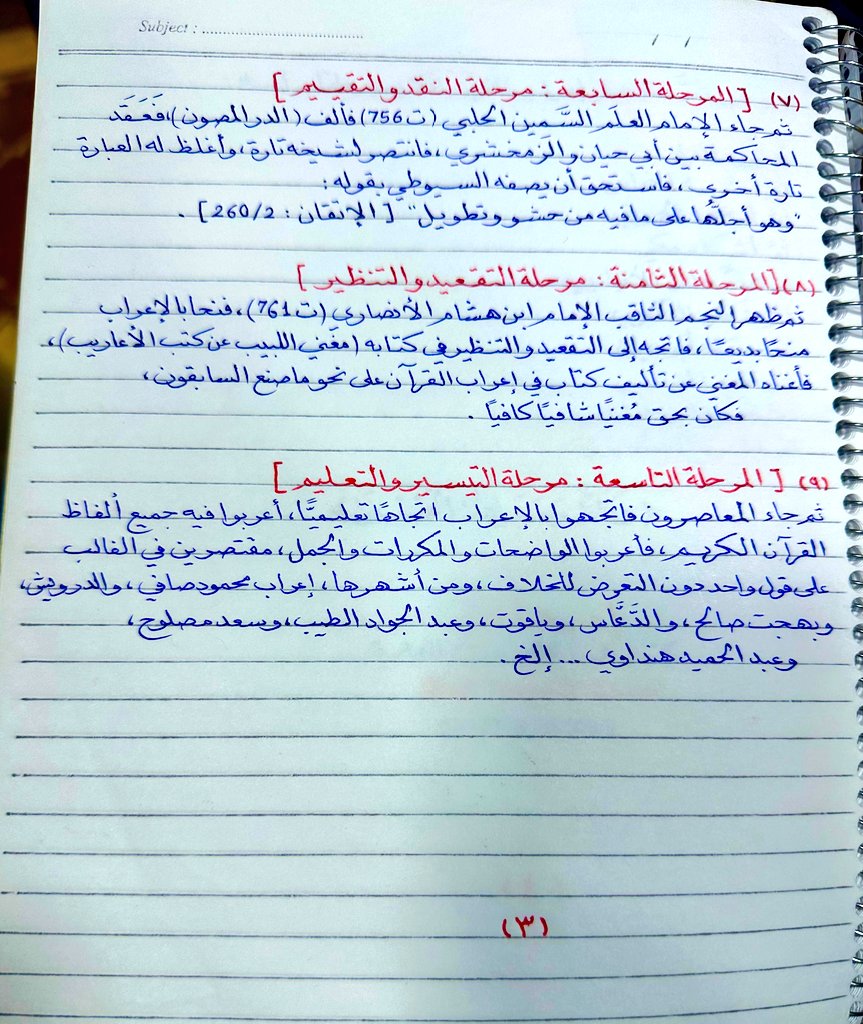 Subject : ....................................
/ /
(٧) [المرحلة السابعة : مرحلة النقد والتقييم]
ثم جاء الإمام العلَم السَّمين الحلبي (ت756) فألف (الدر المصون)، فَعَقَد
المحاكمة بين أبي حيان والزمخشري، فانتصر لشيخه تارة، وأغلظ له العبارة
تارة أخرى، فاستحق أن يصفه السيوطي بقوله :
"وهو أجلّها على ما فيه من حشو وتطويل" [الإتقان : 260/2] .
(٨) [المرحلة الثامنة : مرحلة التقعيد والتنظير]
ثم ظهر النجم الثاقب الإمام ابن هشام الأنصاري (ت761)، فنحا بالإعراب
منحًا بديعًا، فاتجه إلى التقعيد والتنظير في كتابه (مغني اللبيب عن كتب الأعاريب)،
فأغناه المغني عن تأليف كتاب في إعراب القرآن على نحو ما صنع السابقون،
فكان بحق مُغنيًا شافيًا كافيًا .
(٩) [المرحلة التاسعة : مرحلة التيسير والتعليم]
ثم جاء المعاصرون فاتجهوا بالإعراب اتجاهًا تعليميًّا، أعربوا فيه جميع ألفاظ
القرآن الكريم، فأعربوا الواضحات والمكررات والجمل، مقتصرين في الغالب
على قول واحد دون التعرض للخلاف، ومن أشهرها، إعراب محمود صافي، والدرويش،
وبهجت صالح، والدَّعَّاس، وياقوت، وعبد الجواد الطيب، وسعد مصلوح،
وعبد الحميد هنداوي ... إلخ .
(٣)